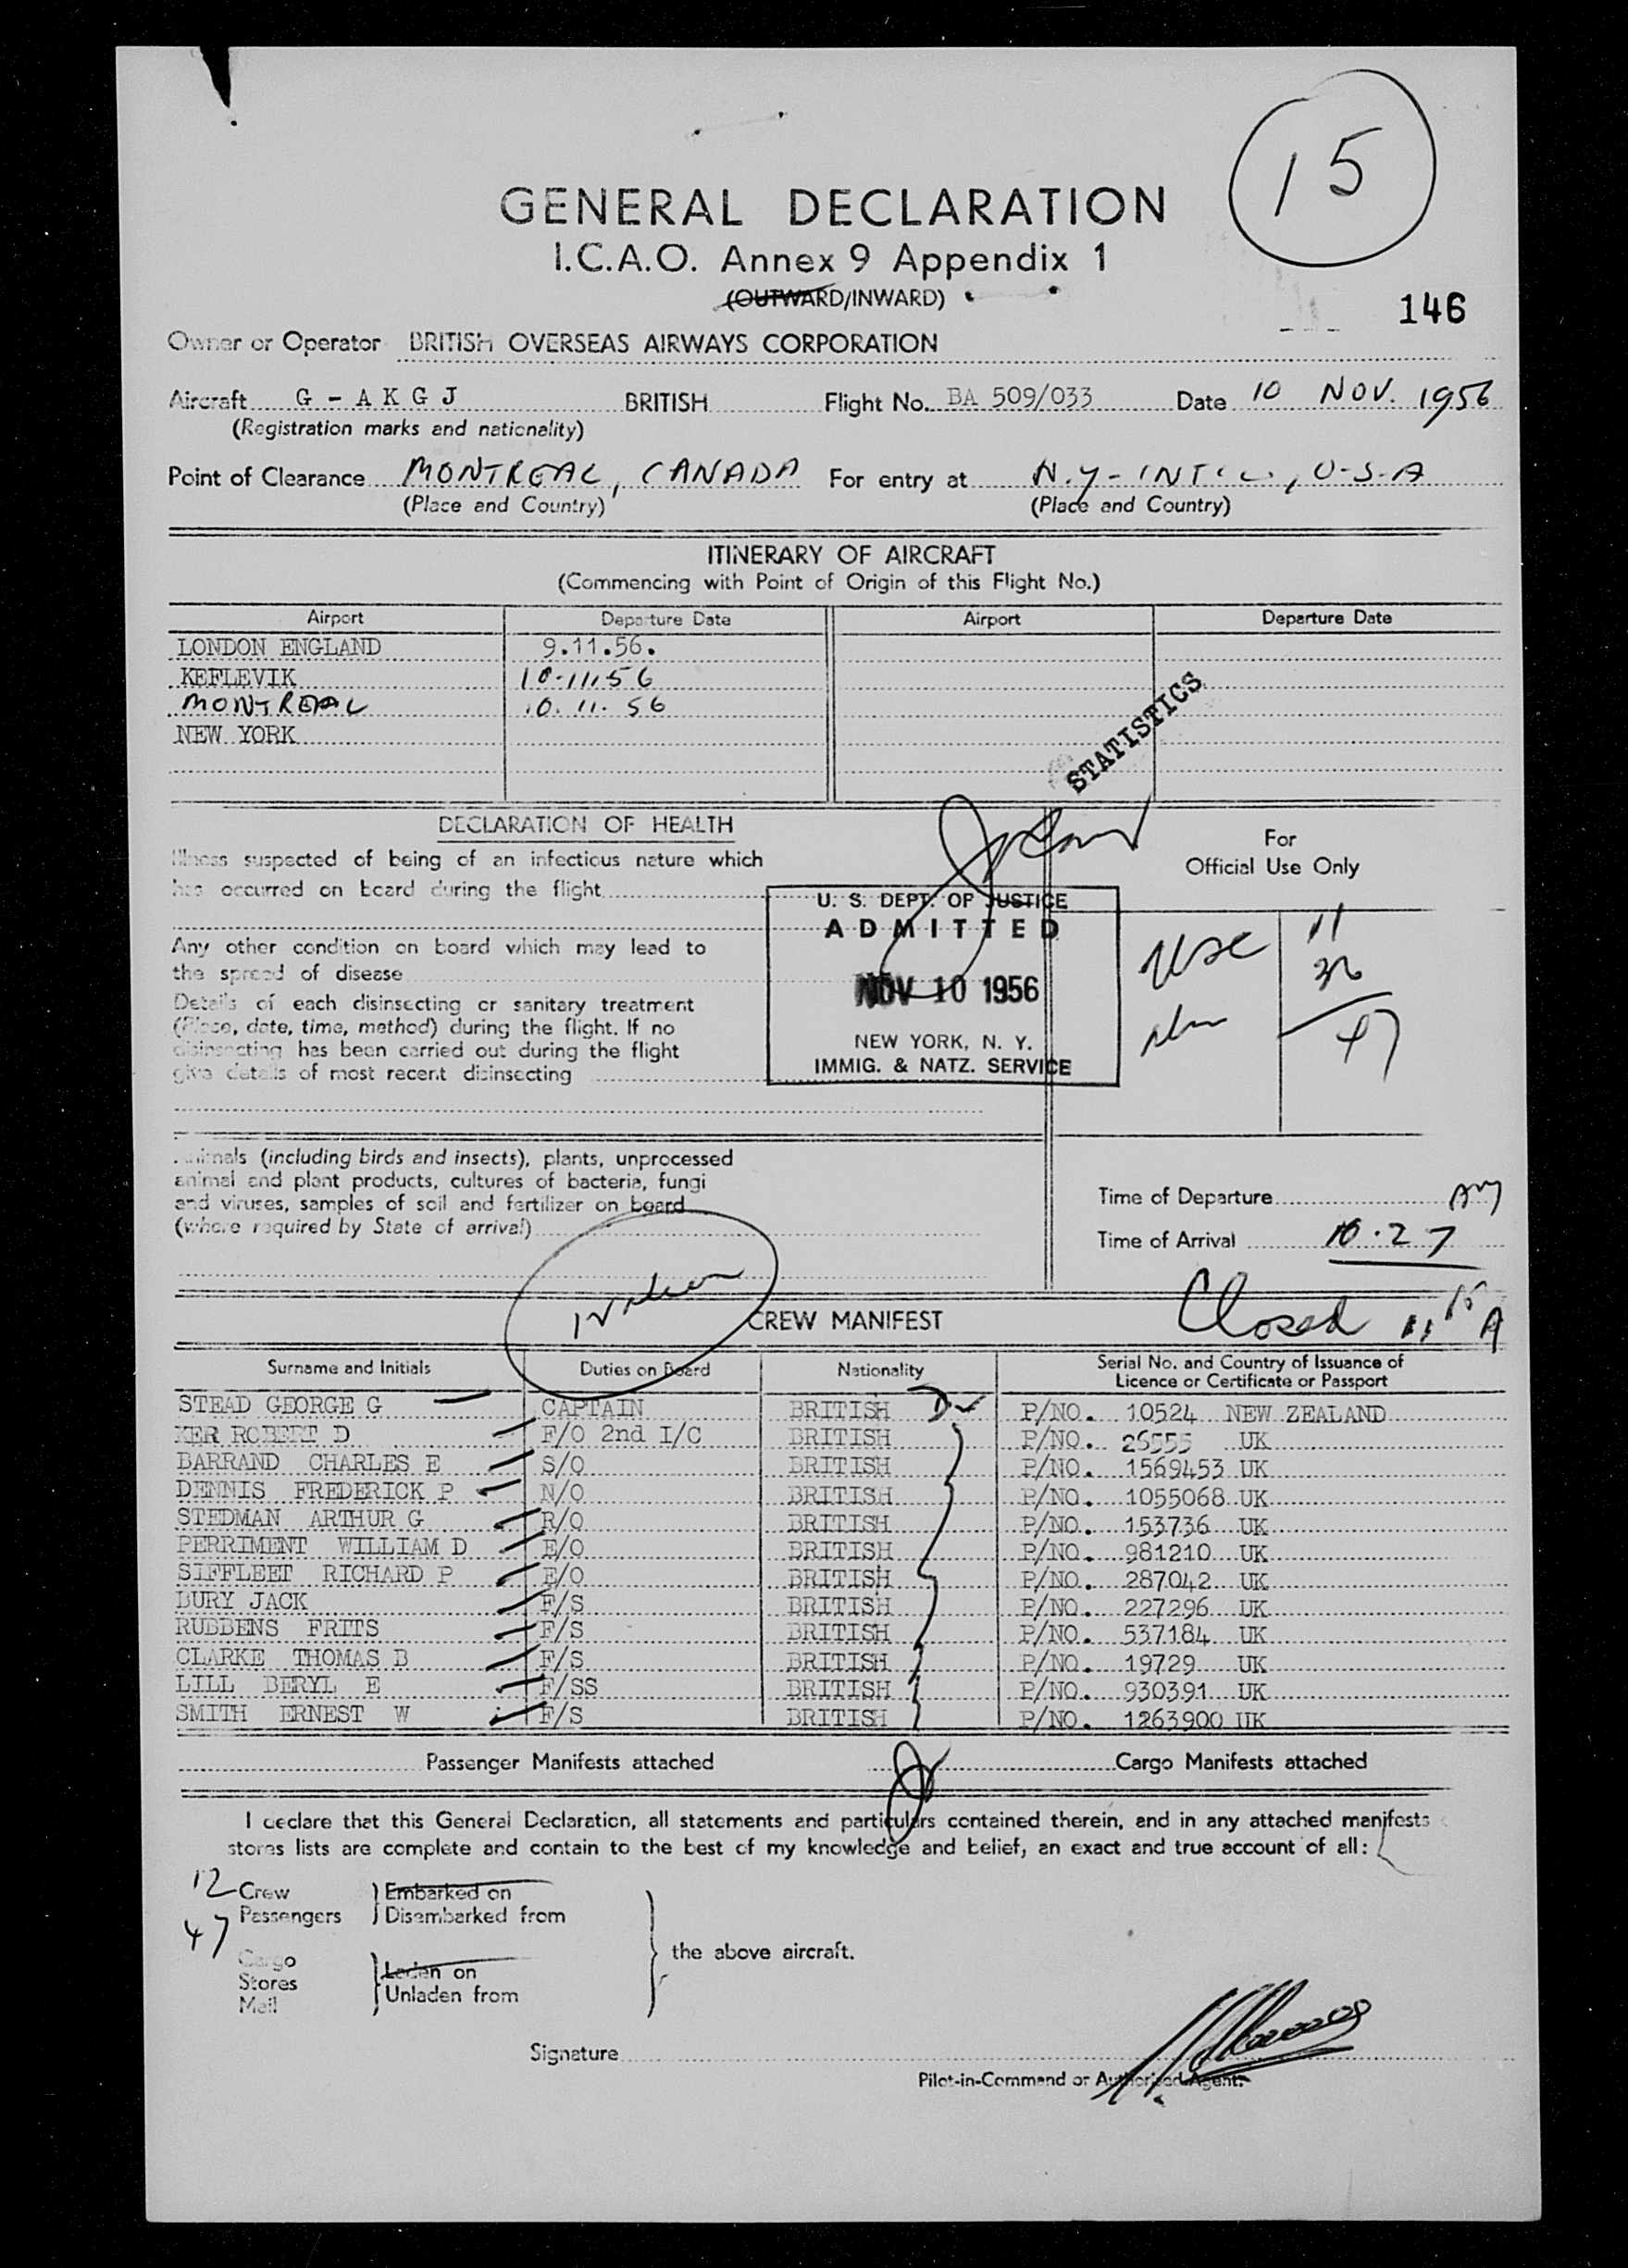 15
GENERAL DECLARATION
I.C.A.O. Annex 9 Appendix 1
(OUTWARD/INWARD)
146
Owner or Operator BRITISH OVERSEAS AIRWAYS CORPORATION
Aircraft G - A K G J BRITISH Flight No. BA 509/033 Date 10 NOV. 1956
(Registration marks and nationality)
Point of Clearance MONTREAL, CANADA For entry at N.Y-INT'L., U-S-A
(Place and Country) (Place and Country)
ITINERARY OF AIRCRAFT
(Commencing with Point of Origin of this Flight No.)
Airport Departure Date Airport Departure Date
LONDON ENGLAND 9.11.56.
KEFLEVIK 10-11.56
MONTREAL 10. 11. 56
NEW YORK
STATISTICS
DECLARATION OF HEALTH
Illness suspected of being of an infectious nature which
has occurred on board during the flight
Any other condition on board which may lead to
the spread of disease
Details of each disinsecting or sanitary treatment
(Place, date, time, method) during the flight. If no
disinsecting has been carried out during the flight
give details of most recent disinsecting
U. S. DEPT. OF JUSTICE
ADMITTED
NOV 10 1956
NEW YORK, N. Y.
IMMIG. & NATZ. SERVICE
For
Official Use Only
USC 11
36
47
Animals (including birds and insects), plants, unprocessed
animal and plant products, cultures of bacteria, fungi
and viruses, samples of soil and fertilizer on board
(where required by State of arrival)
Time of Departure AM
Time of Arrival 10.27
Closed 11 15 A
CREW MANIFEST
Surname and Initials Duties on Board Nationality Serial No. and Country of Issuance of
Licence or Certificate or Passport
STEAD GEORGE G CAPTAIN BRITISH P/NO. 10524 NEW ZEALAND
KER ROBERT D F/O 2nd I/C BRITISH P/NO. 26555 UK
BARRAND CHARLES E S/O BRITISH P/NO. 1569453 UK
DENNIS FREDERICK P N/O BRITISH P/NO. 1055068 UK
STEDMAN ARTHUR G R/O BRITISH P/NO. 153736 UK
PERRIMENT WILLIAM D E/O BRITISH P/NO. 981210 UK
SIFFLEET RICHARD P E/O BRITISH P/NO. 287042 UK
BURY JACK F/S BRITISH P/NO. 227296 UK
RUBBENS FRITS F/S BRITISH P/NO. 537184 UK
CLARKE THOMAS B F/S BRITISH P/NO. 19729 UK
LILL BERYL E F/SS BRITISH P/NO. 930391 UK
SMITH ERNEST W F/S BRITISH P/NO. 1263900 UK
Passenger Manifests attached Cargo Manifests attached
I declare that this General Declaration, all statements and particulars contained therein, and in any attached manifests
stores lists are complete and contain to the best of my knowledge and belief, an exact and true account of all:
12 Crew Embarked on
47 Passengers Disembarked from
the above aircraft.
Cargo Laden on
Stores
Mail Unladen from
Signature
Pilot-in-Command or Authorised Agent.